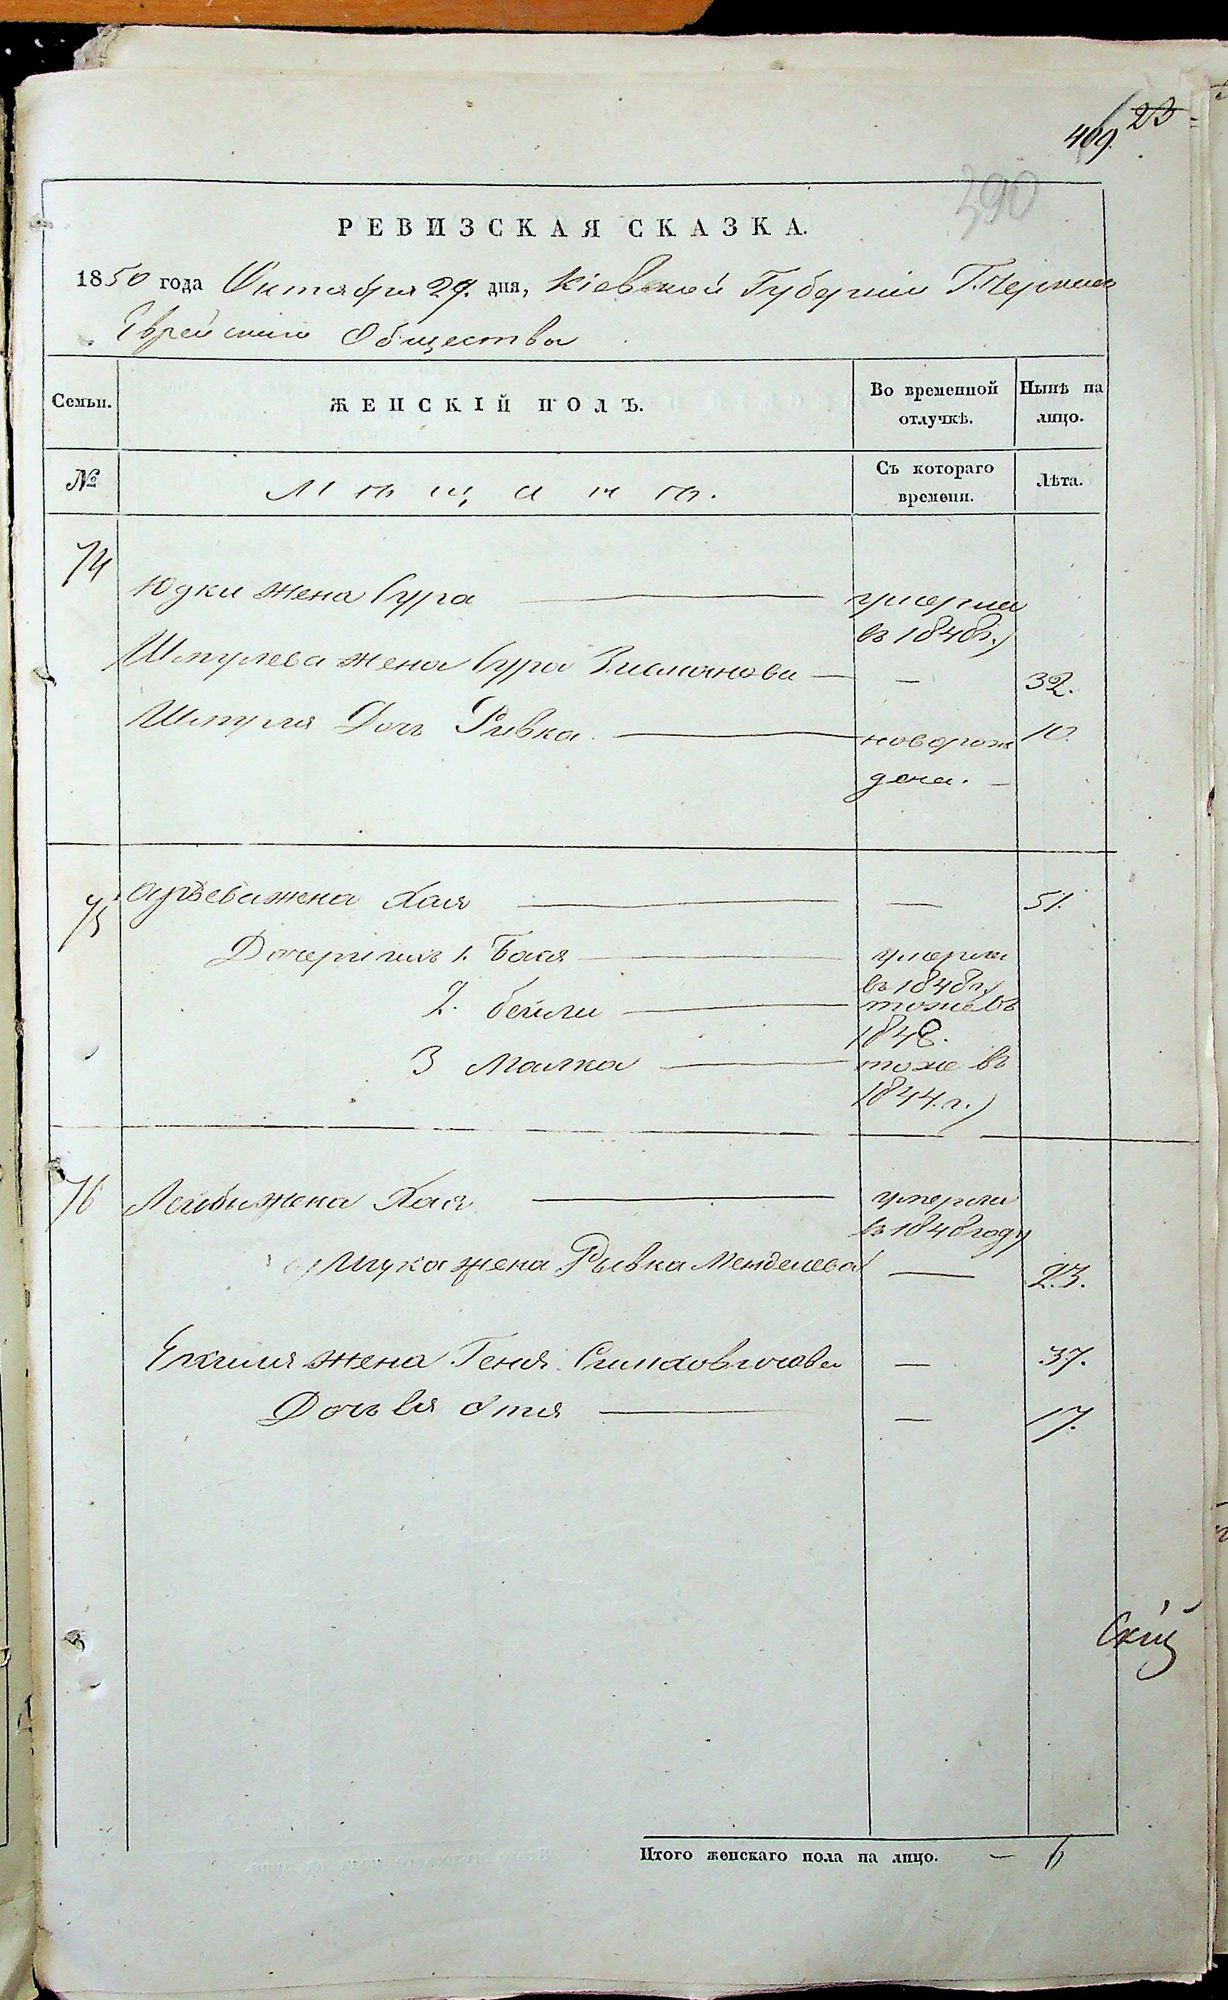 409. 23
390
РЕВИЗСКАЯ СКАЗКА.
1850 года Октября 29. дня, Кіевской Губерніи Г. Черкасъ
Еврейскаго Общества
Семьи. ЖЕНСКІЙ ПОЛЪ. Во временной отлучкѣ. Нынѣ на лицо.
№ Мѣщанѣ. Съ котораго времени. Лѣта.
74
Юдки жена Сура умерла
въ 1848г.
Шмулева жена Сура Зисманова — 32.
Шмуля Дочь Ривка новорож 10.
дена.
75 жена Хая — 51.
Дочери ихъ 1. Бася умерла
въ 1848г.
2. бейли тоже въ
1848.
3 Малка тоже въ
1844.г.
76 Лейбы жена Хая умерла
въ 1848 году
жена Рывка Менделева — 23.
жена Геня — 37.
Дочь Ея Этя — 17.
скій
Итого женскаго пола на лицо. — 6